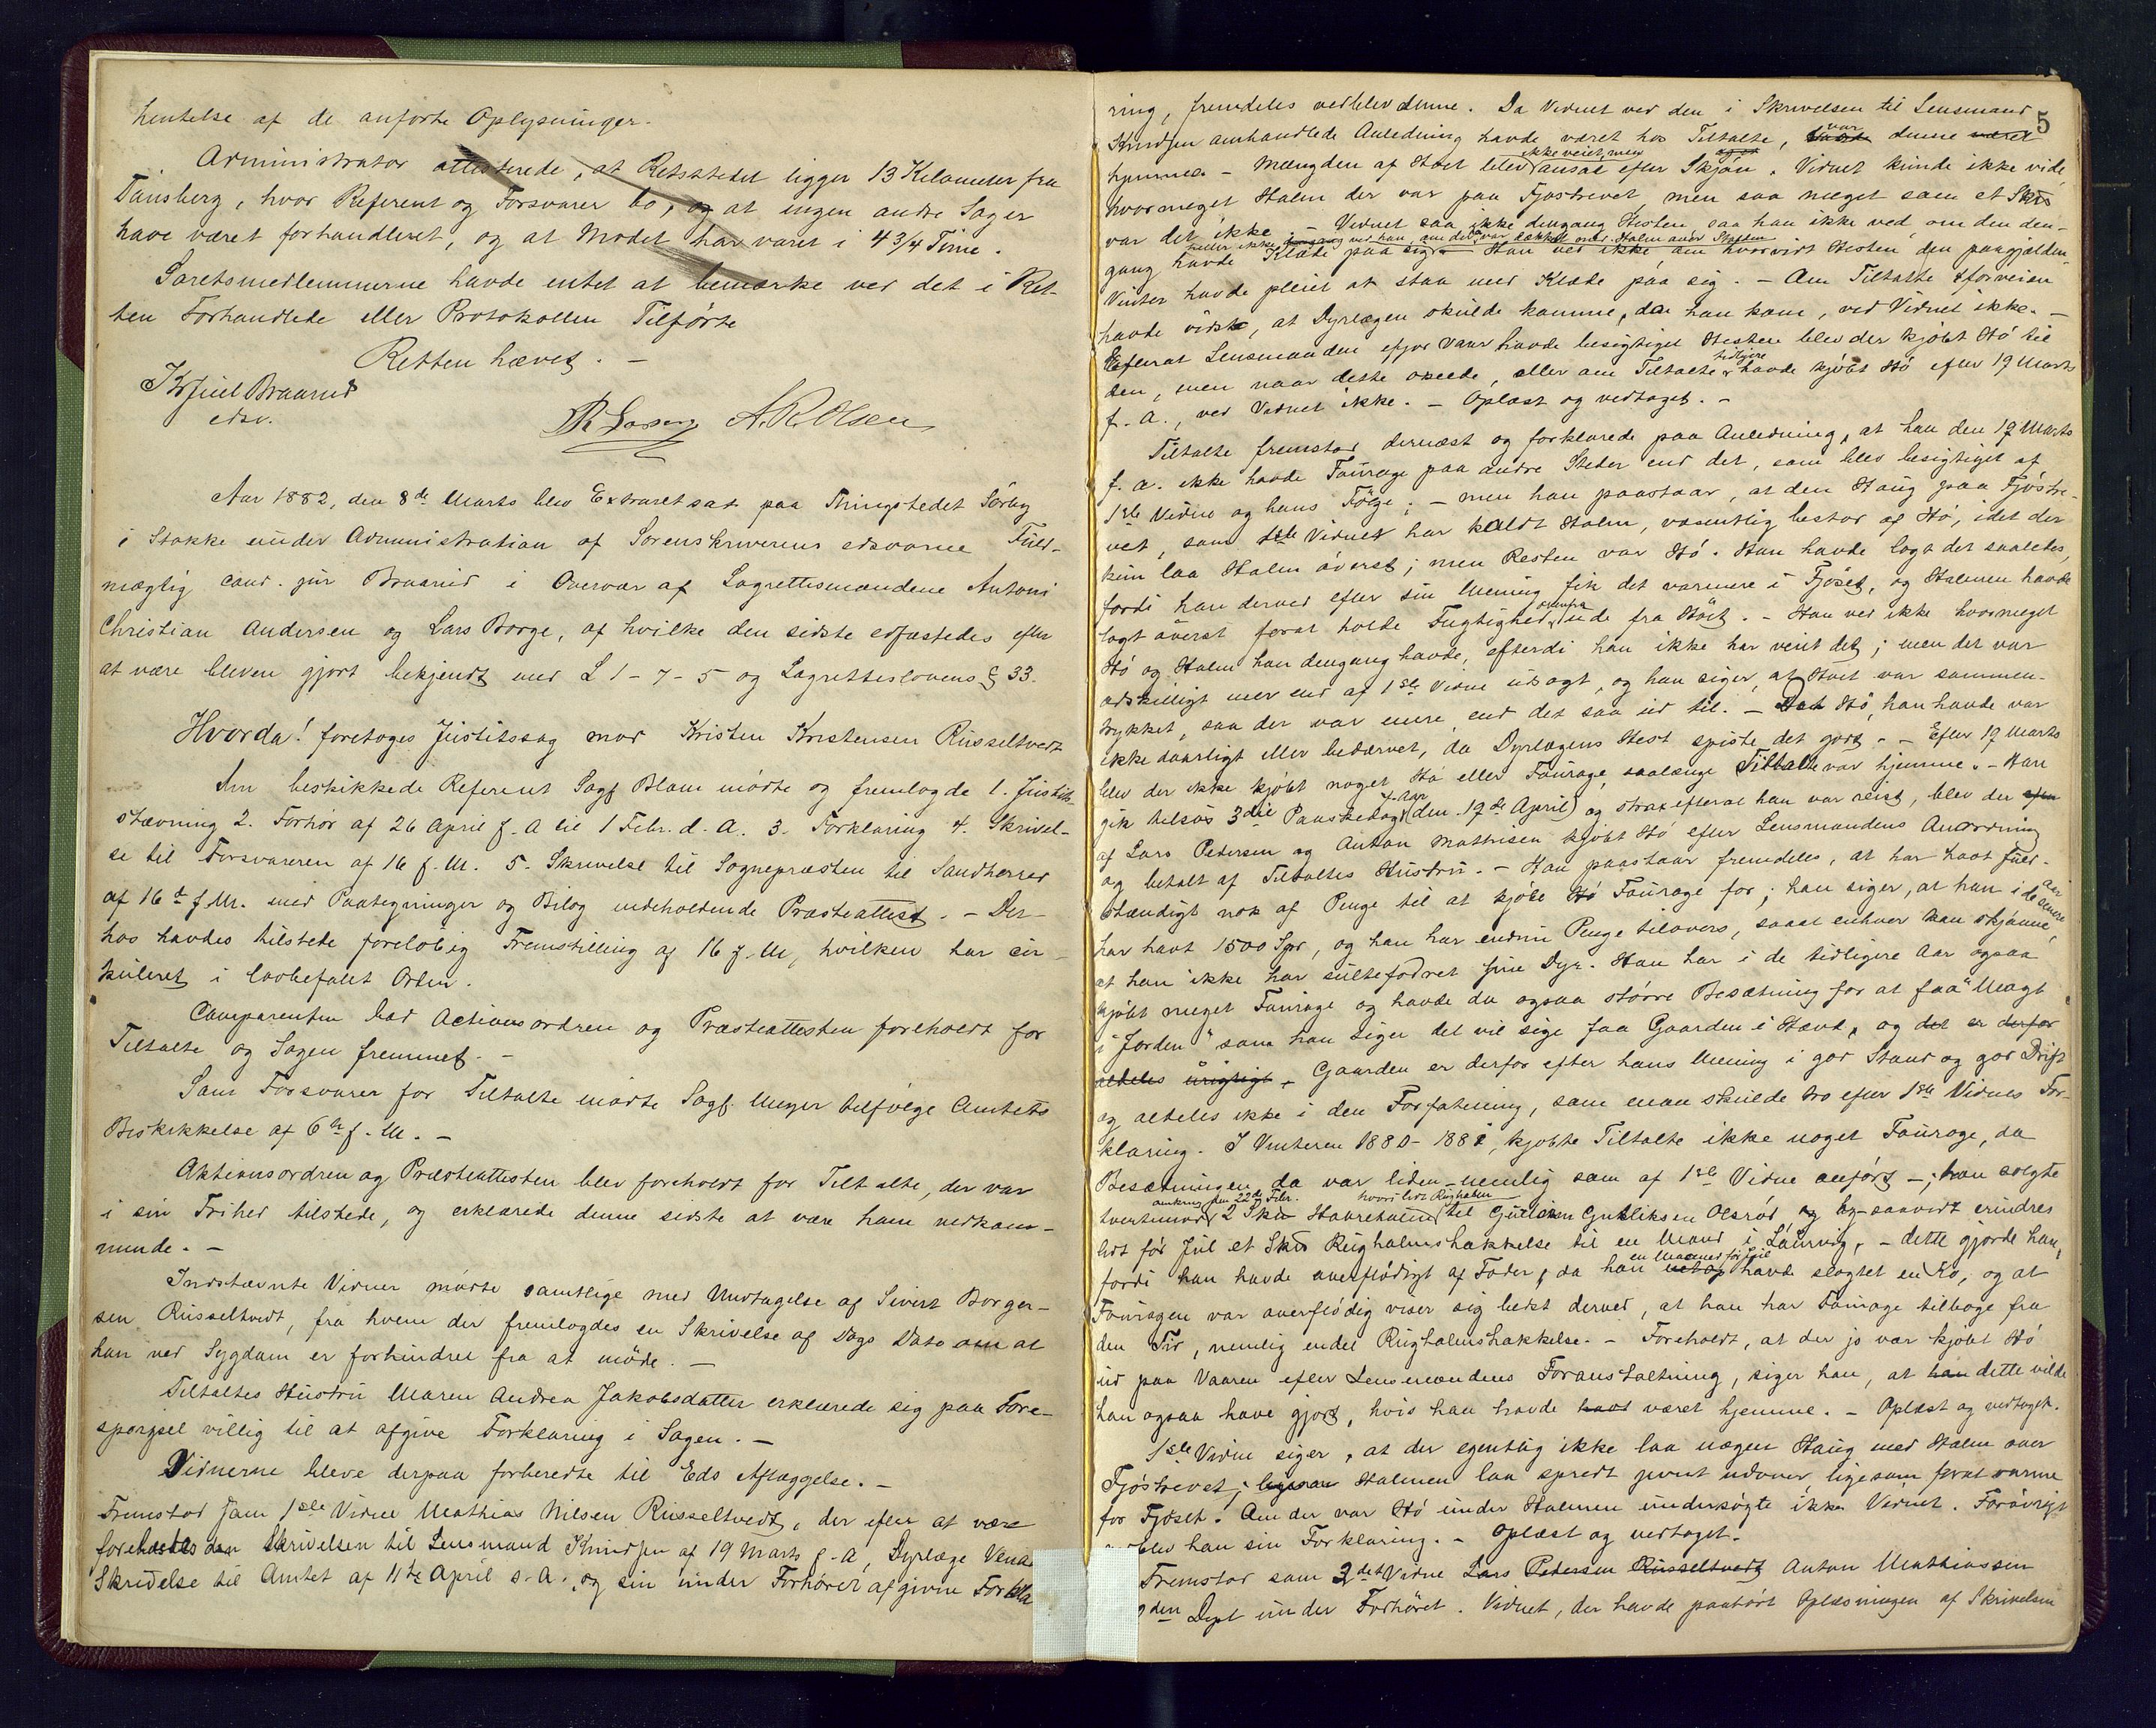 hentelse af de anførte Oplysninger.
Administrator attesterede, at Retsstedet ligger 13 Kilometer fra
Tønsberg, hvor Referent og Forsvarer bo, og at ingen andre Sager
have været forhandleret, og at Mødet har varet i 4 3/4 Time.
Laretsmedlemmerne havde intet at bemærke ved det i Ret-
ten Forhandlede eller Protokollen Tilførte
Retten hævet. -
Braarud
edsv.
A. R. Olsen
Aar 1882, den 8de Marts blev Extraret sat paa Thingstedet Sørby
i Stokke under Administration af Sorenskriverens edsvorne Fuld-
mægtig cand. jur Braarud i Overvær af Lagrettesmændene Antoni
Christian Andersen og Lars Borge, af hvilke den sidste edfæstedes efter
at være bleven gjort bekjendt med L 1-7-5 og Lagretteslovens § 33.
Hvorda! foretoges Justitssag mod Kristen Kristensen Russeltvedt
Den beskikkede Referent Sagf Blom mødte og fremlagde 1. Justits-
stævning 2. Forhør af 26 April f. A til 1 Febr. d. A. 3. Forklaring 4. Skrivel-
se til Forsvareren af 16 f. M. 5. Skrivelse til Sognepræsten til Sandherred
af 16de f. M. med Paategninger og Bilag indeholdende Præsteattest. - Der-
hos havdes tilstede foreløbig Fremstilling af 16 f. M, hvilken har cir-
kuleret i lovbefalet Orden.
Comparenten bad Actionsordren og Præsteattesten foreholdt for
Tiltalte og Sagen fremmet. -
Som Forsvarer for Tiltalte mødte Sagf. Meyer tilfølge Amtets
Beskikkelse af 6te f. M. -
Aktionsordren og Præsteattesten blev foreholdt for Tiltalte, der var
i sin Frihed tilstede, og erklærede denne sidste at være ham vedkom-
mende. -
Indstævnte Vidner mødte samtlige med Undtagelse af Sivert Borger-
sen Russeltvedt, fra hvem der fremlagdes en Skrivelse af Dags Dato om at
han ved Sygdom er forhindret fra at møde. -
Tiltaltes Hustru Maren Andrea Jakobsdatter erklærede sig paa Fore-
spørgsel villig til at afgive Forklaring i Sagen. -
Vidnerne bleve derpaa forberedte til Eds Aflæggelse. -
Fremstod som 1ste Vidne Mathias Nilsen Russeltvedt, der efter at være
foreholdt den Skrivelsen til Lensmand Knudsen af 19 Marts f. A, Dyrlæge
Skrivelse til Amtet af 11te April s. A. og sin under Forhøret afgivne Forkla
5
ring, fremdeles vedblev denne. Da Vidnet ved den i Skrivelsen til Lensmand
Knudsen omhandlede Anledning havde været hos Tiltalte, var denne været
hjemme. - Mængden af Høet blev ikke veiet, men ansat efter Skjøn. Vidnet kunde ikke vide,
hvormeget Halm der var paa Fjøstrevet, men saa meget som et Skd
var det ikke. - Vidnet saa ikke dengang Hesten saa han ikke ved, om den den-
heller ikke ved han, om det var lækket med Halm over Stalden
gang havde Klæde paa sig. - Han ved ikke, om hvorvidt Hesten den paagjælden-
Vinter havde pleiet at staa med Klæde paa sig. - Om Tiltalte iforveien
havde vidst, at Dyrlægen skulde komme, da han kom, ved Vidnet ikke. -
Efterat Lensmanden ifjor Vaar havde besigtiget Hesten blev der kjøbt Hø til
den, men naar dette skeede, eller om Tiltalte tidligere havde kjøbt Hø efter 19 Marts
f. A., ved Vidnet ikke. - Oplæst og vedtaget. -
Tiltalte fremstod dernæst og forklarede paa Anledning, at han den 19 Marts
f. A. ikke havde Fourage paa andre Steder end det, som blev besigtiget af
1ste Vidne og hans Følge; - men han paastaar, at den Haug paa Fjøstre-
vet, som 1ste Vidnet har kaldt Halm, væsentlig bestod af Hø, idet der
kun laa Halm øverst; men Resten var Hø. Han havde lagt det saaledes,
fordi han derved efter sin Mening fik det varmere i Fjøset, og Halmen havde
lagt øverst forat holde Fugtighed ovenfra ude fra Høit. - Han ved ikke hvormeget
Hø og Halm han dengang havde, efterdi han ikke har veiet det; men det var
adskilligt mer end af 1ste Vidne udsagt, og han siger, at Høet var sammen-
trykket, saa der var mere end det saa ud til. - Det Hø, han havde var
ikke daarligt eller bedærvet, da Dyrlægens Hest spiste det godt. - Efter 19 Marts
blev der ikke kjøbt noget Hø eller Fourage, saalænge Tiltalte var hjemme. - Han
gik tilsøs 3die Paaskedag f. Aar (den 19de April) og strax efterat han var reist, blev der efter
af Lars Petersen og Anton Mathisen kjøbt Hø efter Lensmandens Anordning
og betalt af Tiltaltes Hustru. - Han paastaar fremdeles, at har havt fuld-
stændigt nok af Penge til at kjøbe Hø Fourage for; han siger, at han i de senere Aar
har havt 1500 Spd, og han har endnu Penge tilovers, saaat enhver kan skjønne,
at han ikke har sultefodret sine Dyr. Han har i de tidligere Aar ogsaa
kjøbt meget Fourage og havde da ogsaa større Besætning for at faa "Magt
i Jorden" som han siger det vil sige faa Gaarden i Hævd, og det er derfor
aldeles urigtigt. Gaarden er derfor efter hans Mening i god Stand og god Drift
og aldeles ikke i den Forfatning, som man skulde tro efter 1ste Vidnes For-
klaring. I Vinteren 1880-1881, kjøbte Tiltalte ikke noget Fourage, da
Besætningen da var liden - nemlig som af 1ste Vidne anført -; han solgte
tvertimod omkring den 22de Febr. 2 Skd Havrehalm hvori lidt Rughalm til Gulliksen Olsrød, og saavidt erindres
lidt før Jul et Skd Rughalmshakkelse til en Mand i Laurvig, - dette gjorde han,
fordi han havde overflødigt af Foder, da han en Maaned før Jul havde slagtet en Ko, og at
Fouragen var overflødig viser sig bedst derved, at han har Fourage tilbage fra
den Tid, nemlig endel Rughalmshakkelse. - Foreholdt, at der jo var kjøbt Hø
ud paa Vaaren efter Lensmandens Foranstaltning, siger han, at han dette vilde
han ogsaa have gjort, hvis han havde havt været hjemme. - Oplæst og vedtaget.
1ste Vidne siger, at der egentlig ikke laa nogen Haug med Halm over
Fjøstrevet; Halmen laa spredt jevnt udover, ligesom forat varme
for Fjøset. Om der var Hø under Halmen undersøgte ikke Vidnet. Forøvrigt
blev han sin Forklaring. - Oplæst og vedtaget.
Fremstod som 2det Vidne Lars Petersen Russeltvedt Anton Mathiassen
den Dept under Forhøret. Vidnet, der havde paahørt Oplæsningen af Skrivelsen